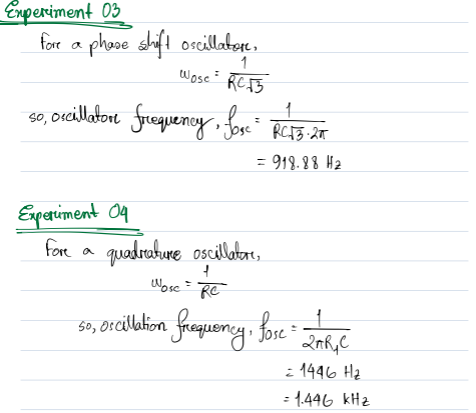 Experiment 03
Fore a phase shift oscillatore,
ω_osc = 1 / RC√3
so, oscillatore frequency, f_osc = 1 / RC√3·2π
= 918.88 Hz
Experiment 04
Fore a quadrature oscillatore,
ω_osc = 1 / RC
so, oscillation frequency, f_osc = 1 / 2πR₁C
= 1446 Hz
= 1.446 kHz